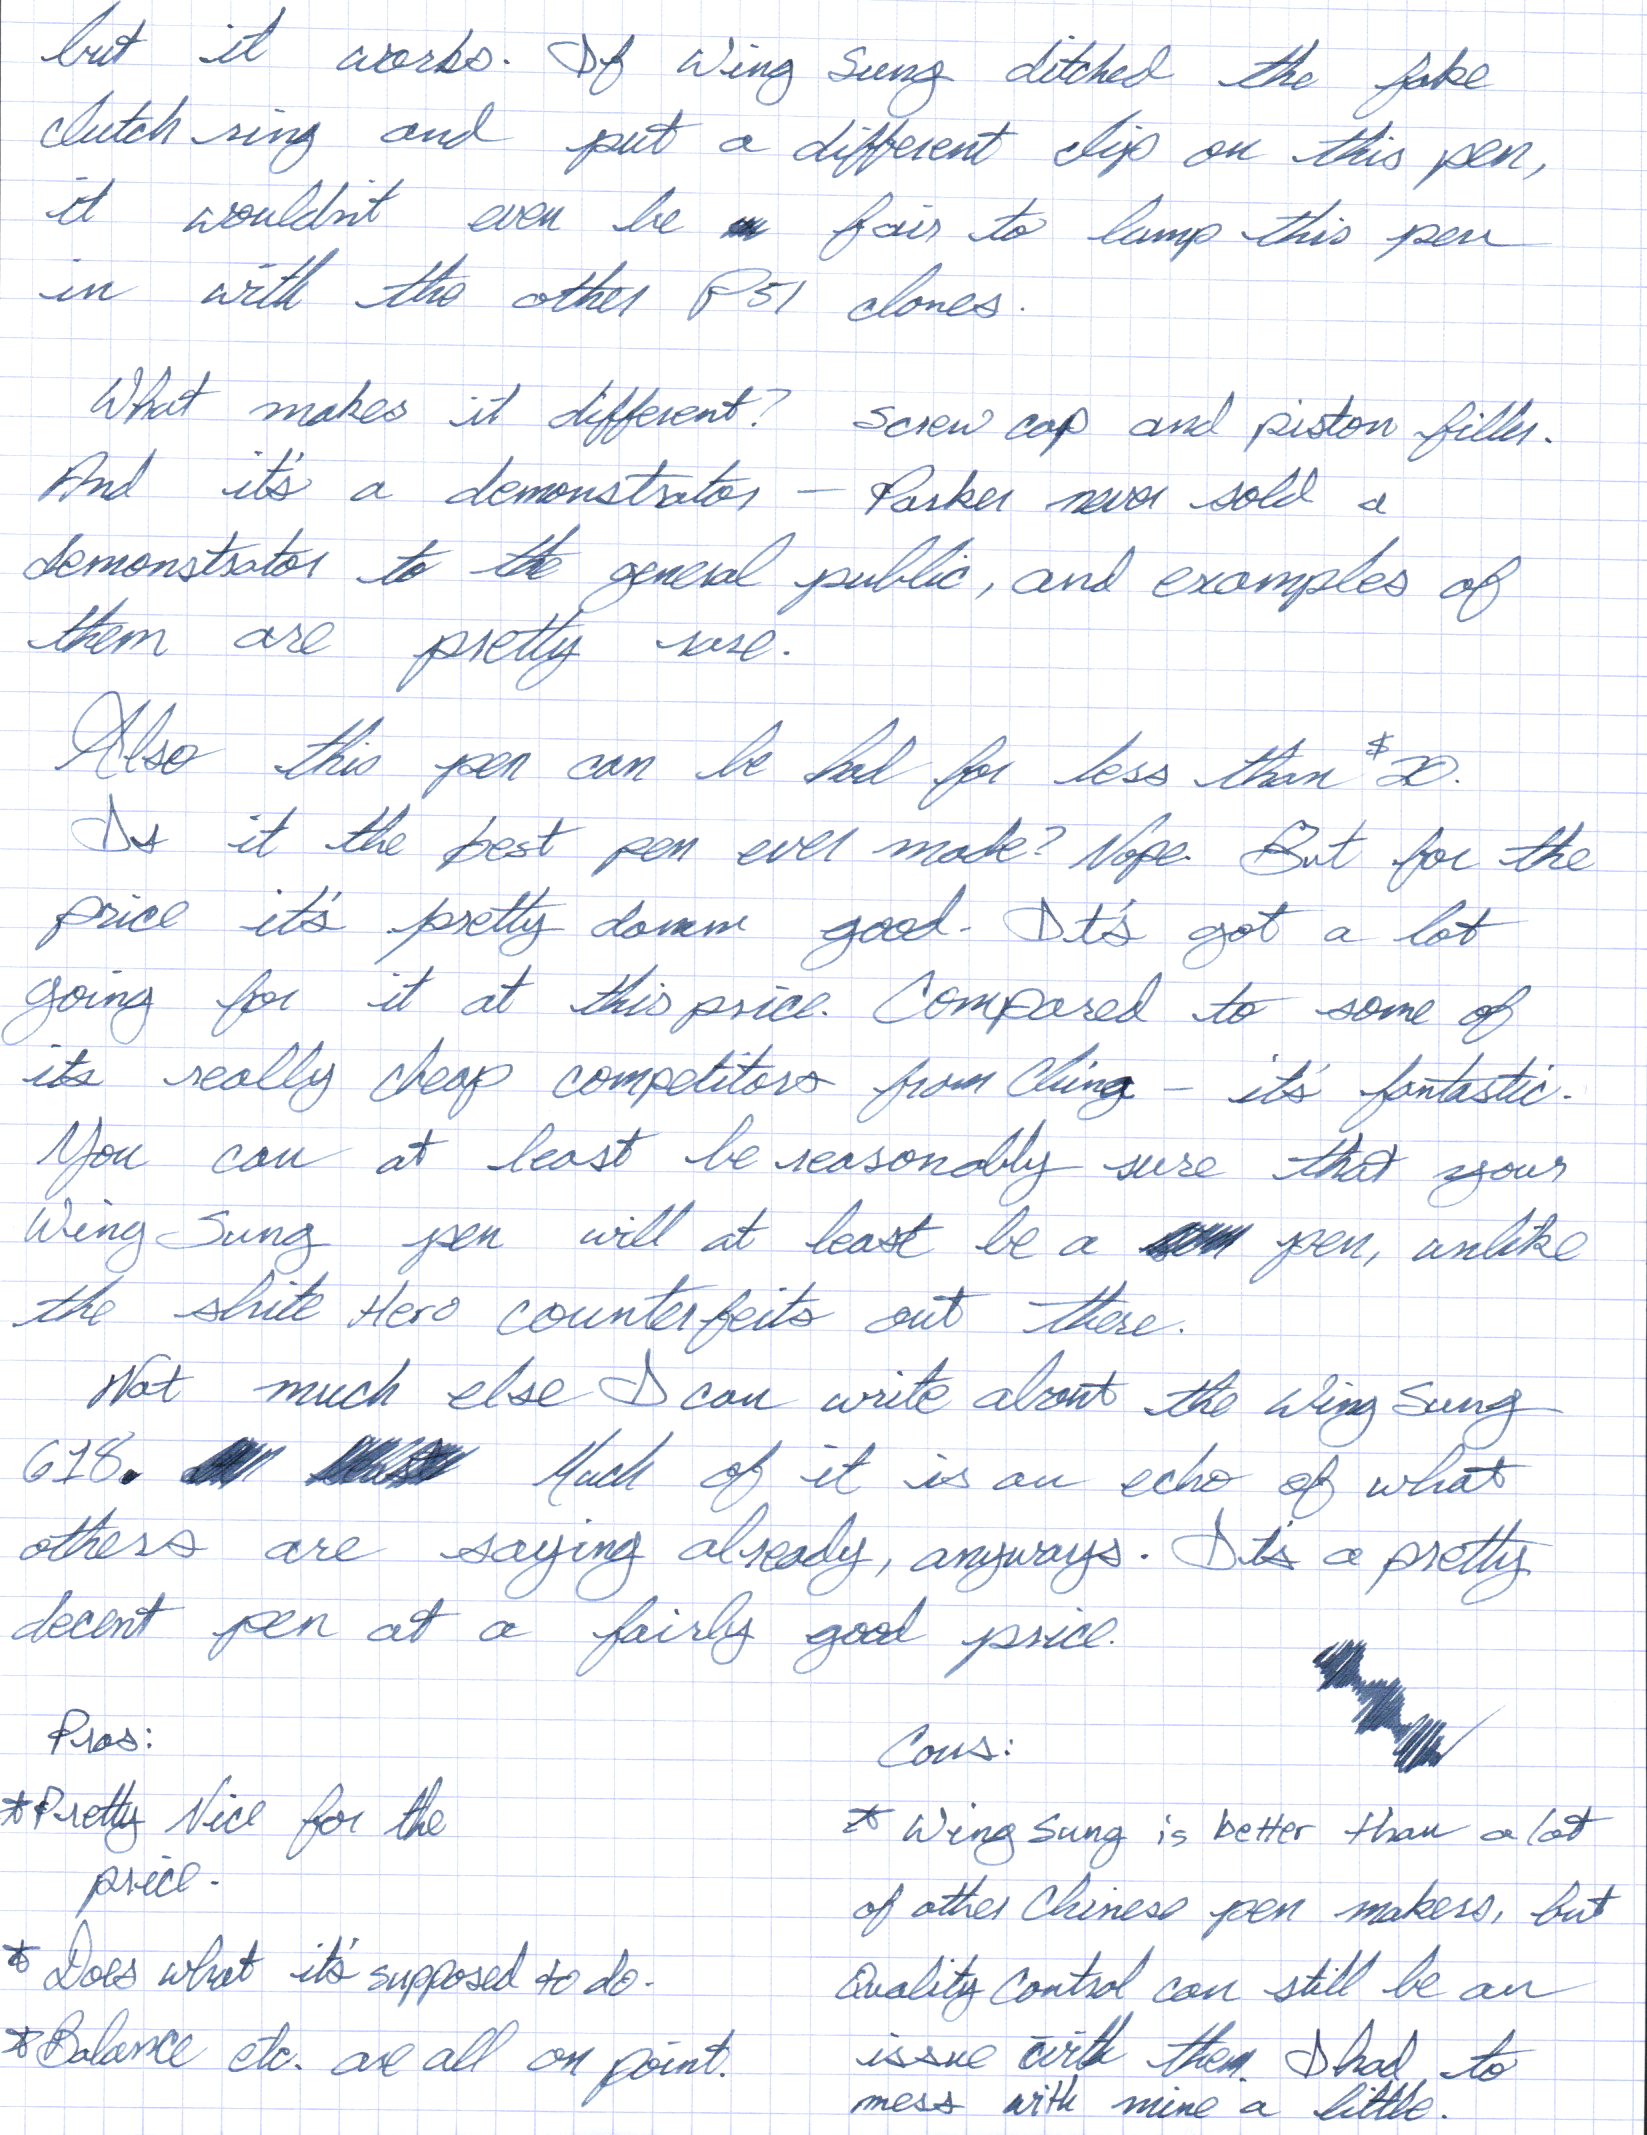 but it works. If Wing Sung ditched the fake
clutch ring and put a different clip on this pen,
it wouldn't even be fair to lump this pen
in with the other P51 clones.
What makes it different? Screw cap and piston filler.
And it's a demonstrator – Parker never sold a
demonstrator to the general public, and examples of
them are pretty rare.
Also this pen can be had for less than $20.
Is it the best pen ever made? Nope. But for the
price it's pretty damn good. It's got a lot
going for it at this price. Compared to some of
its really cheap competitors from China – it's fantastic.
You can at least be reasonably sure that your
Wing Sung pen will at least be a pen, unlike
the shite Hero counterfeits out there.
Not much else I can write about the Wing Sung
618. Much of it is an echo of what
others are saying already, anyways. It's a pretty
decent pen at a fairly good price.
Pros:
*Pretty Nice for the
price.
* Does what it's supposed to do.
*Balance etc. are all on point.
Cons:
* Wing Sung is better than a lot
of other Chinese pen makers, but
Quality Control can still be an
issue with them. I had to
mess with mine a little.